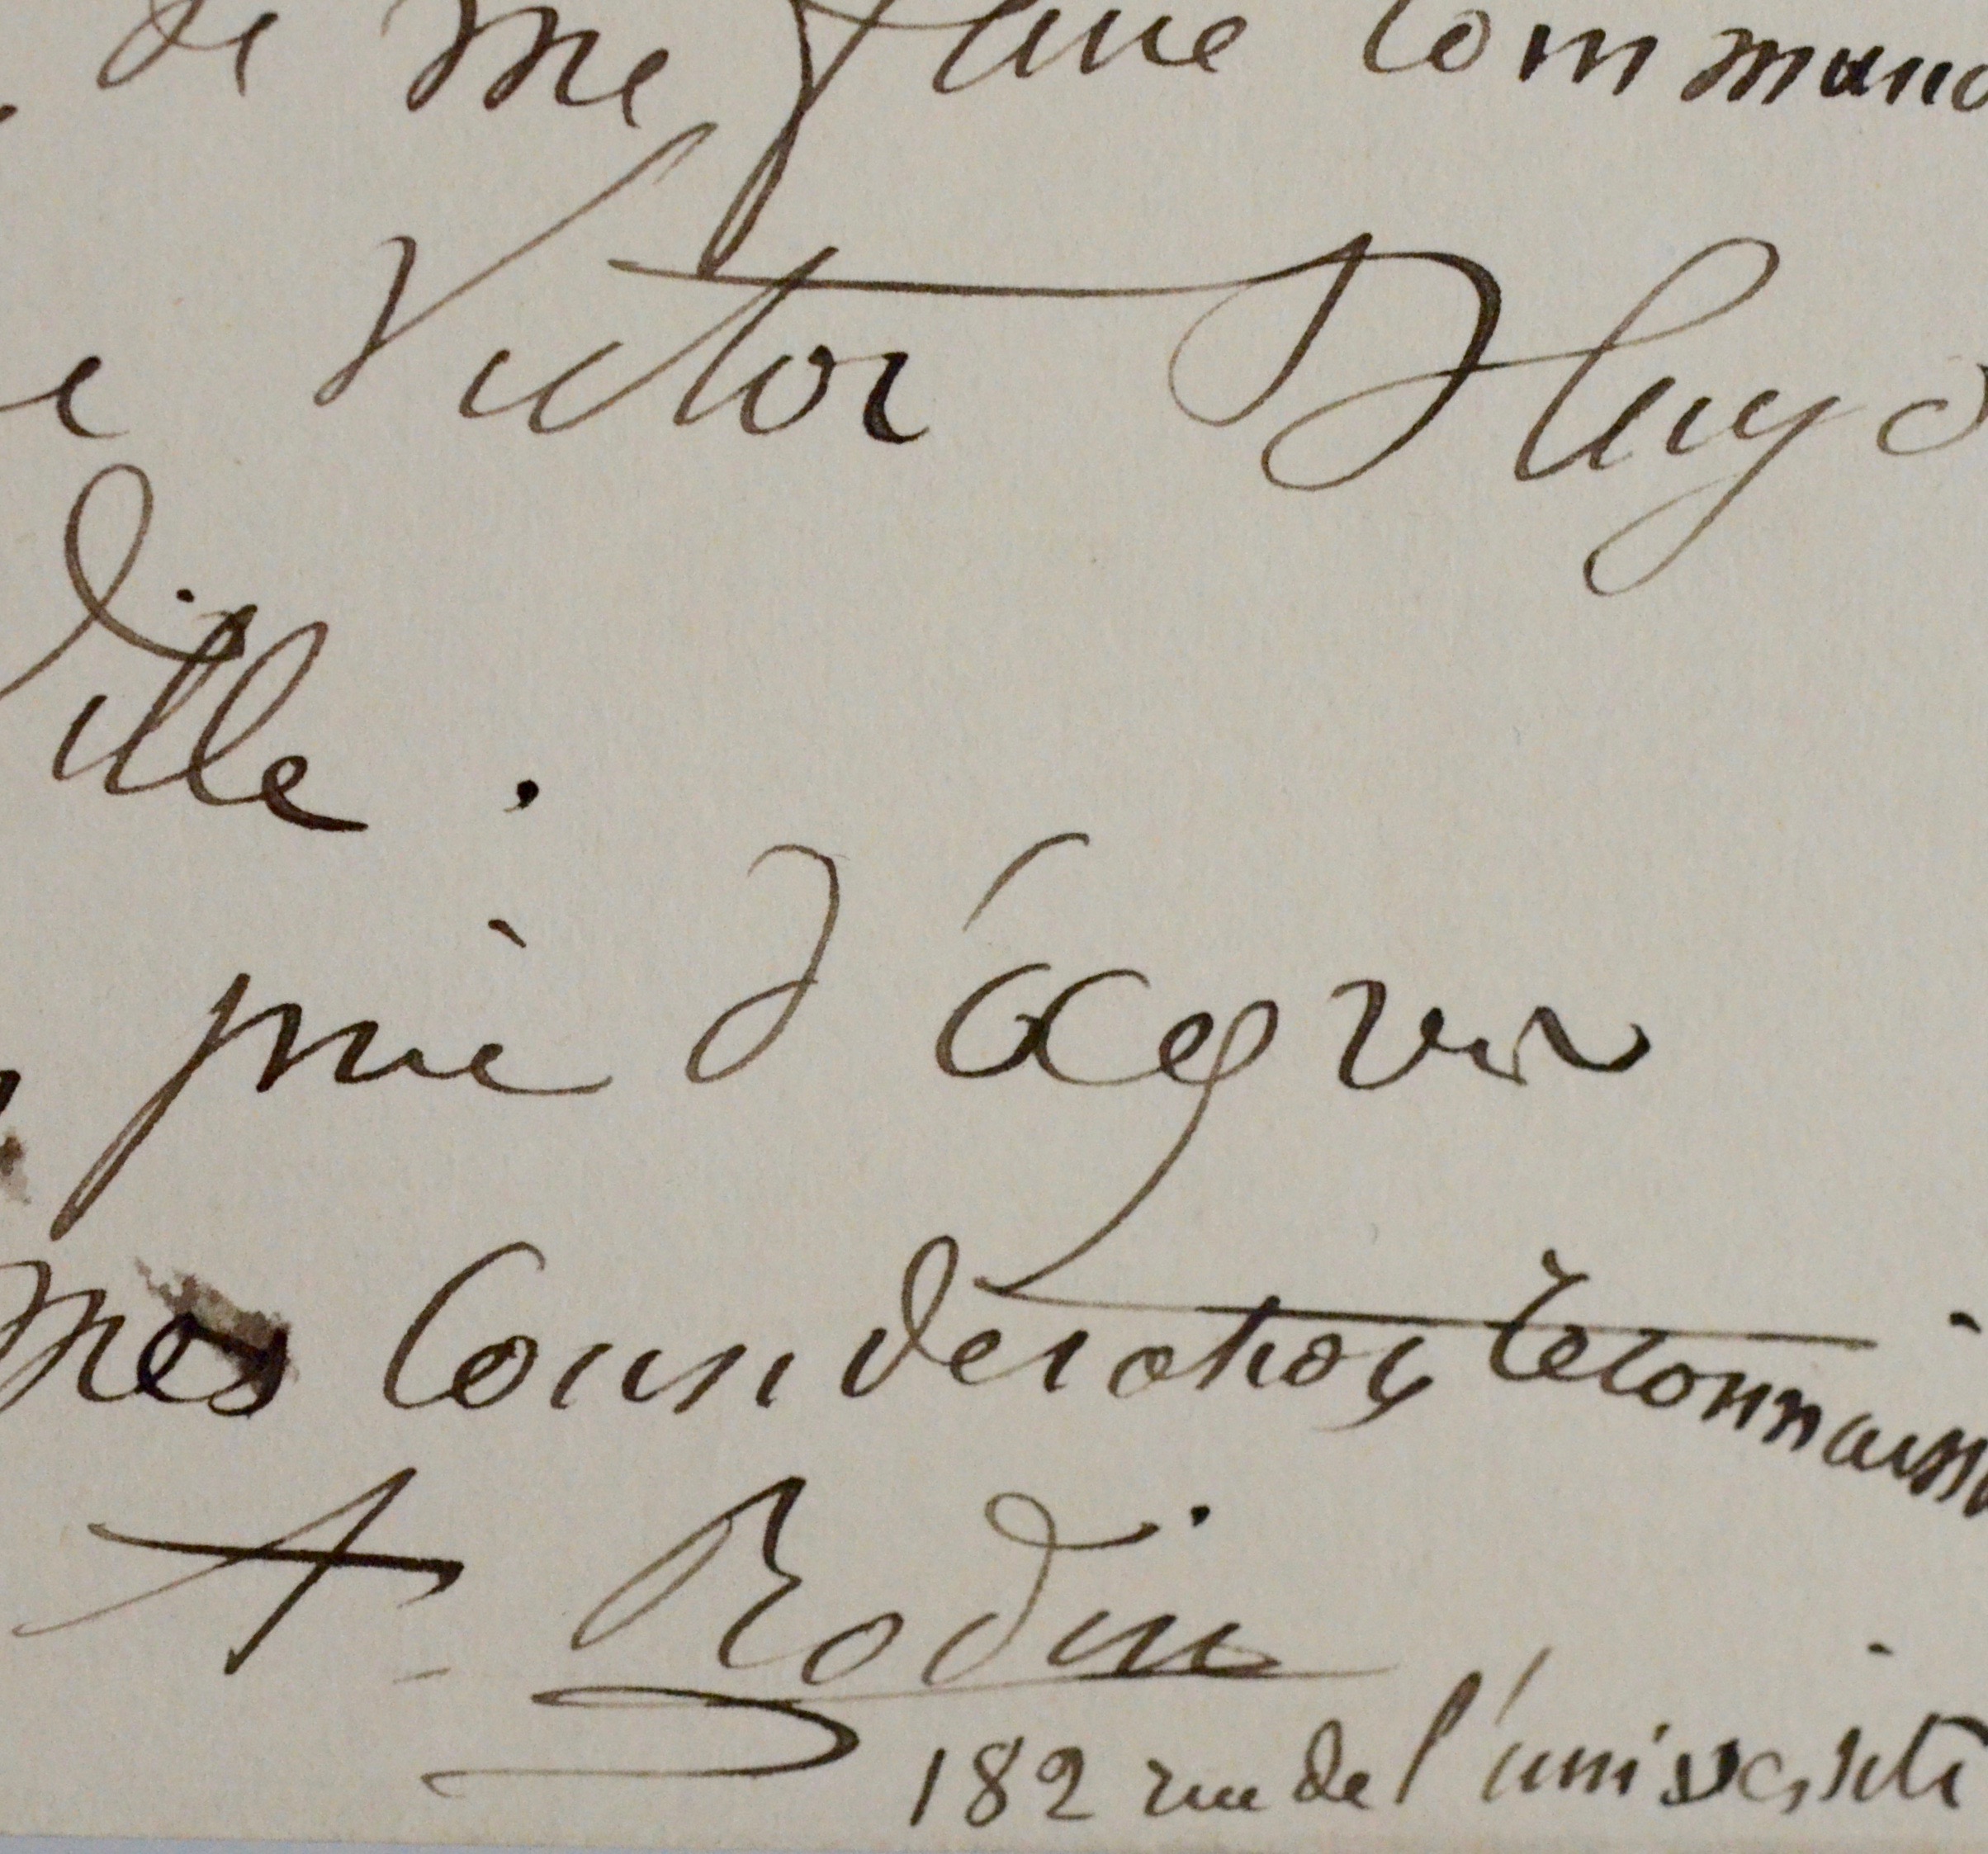 de me faire command
e Victor Hugo
Ville.
prie d'agréer
mes Considérations reconnaiss
A. Rodin
182 rue de l'université